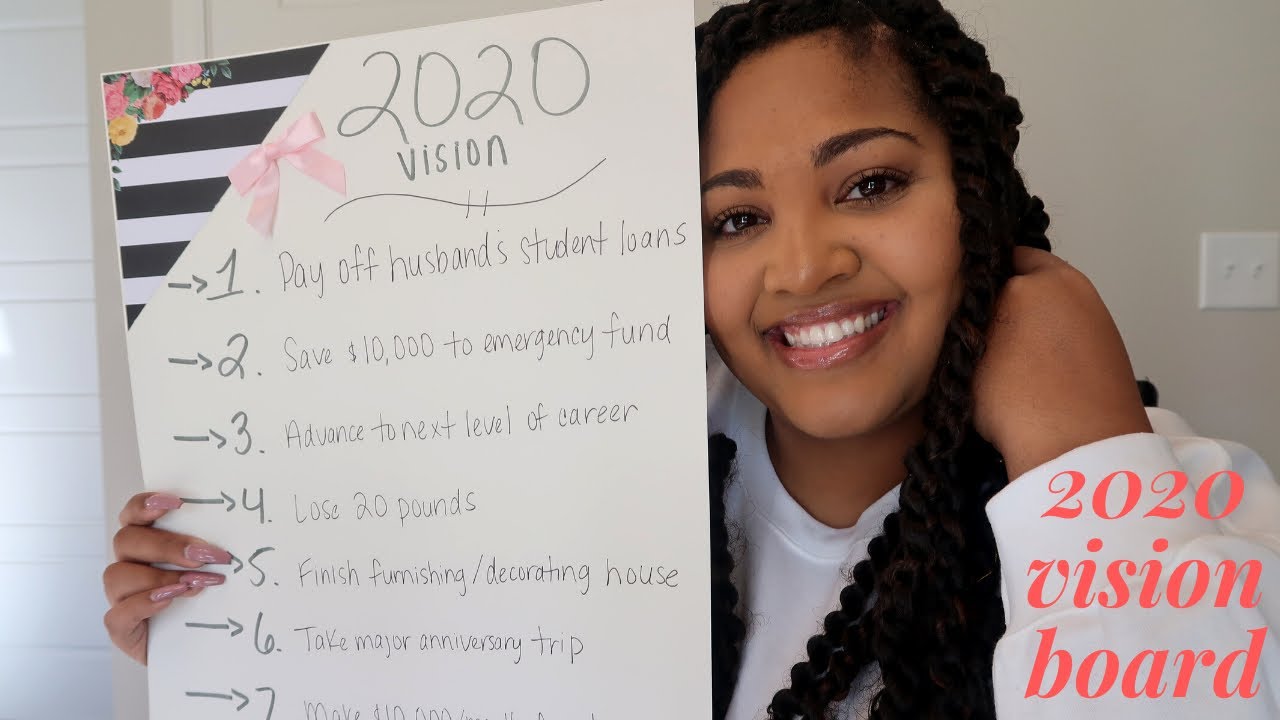 2020
vision
→1. Pay off husband's student loans
→2. Save $10,000 to emergency fund
→3. Advance to next level of career
→4. Lose 20 pounds
→5. Finish furnishing/decorating house
→6. Take major anniversary trip
→7. Make $10,000/
2020
vision
board